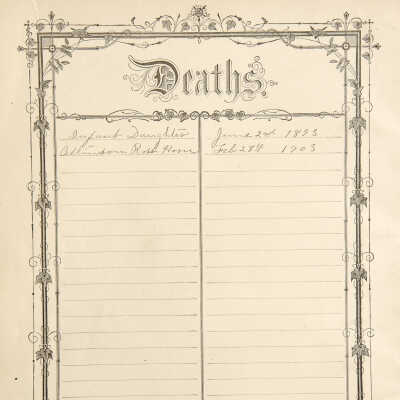 Deaths.
Infant Daughter June 2nd 1893
Ross Feb 28th 1903